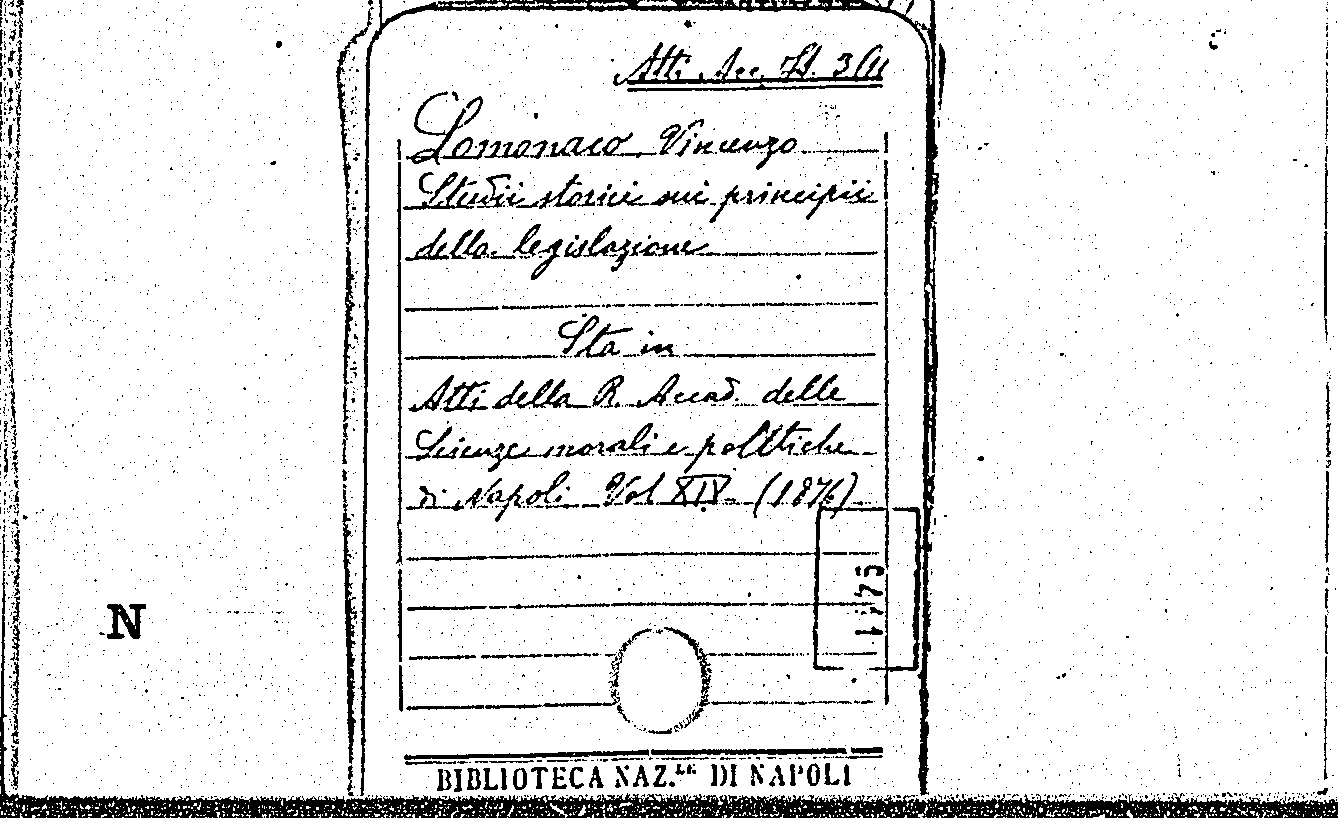 Atti Acc. It. 3/II
Lomonaco Vincenzo
Studii storici sui principii
della legislazione
Sta in
Atti della R. Accad. delle
Scienze morali e politiche
di Napoli Vol XIV (1876)
N
BIBLIOTECA NAZ.LE DI NAPOLI